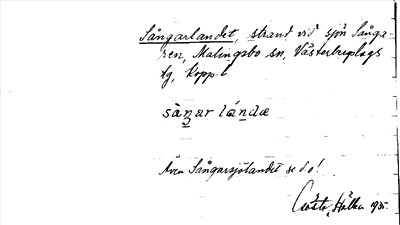 Sångarlandet, strand vid sjön Sånga-
ren, Malingsbo sn, Västerbergslags
tg, Kopp. l
sàŋar lándæ
Även Sångarsjölandet se d.o!
Gösta Hållen 1935.